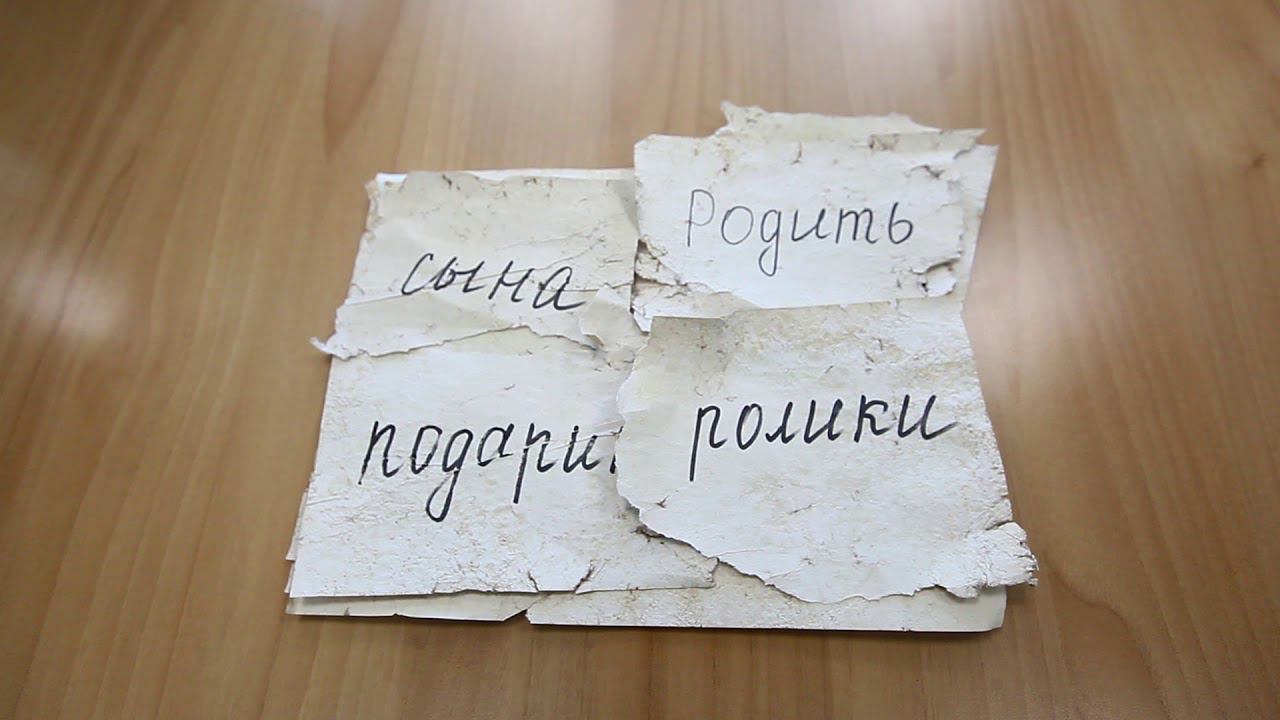 сына Родить
подари ролики